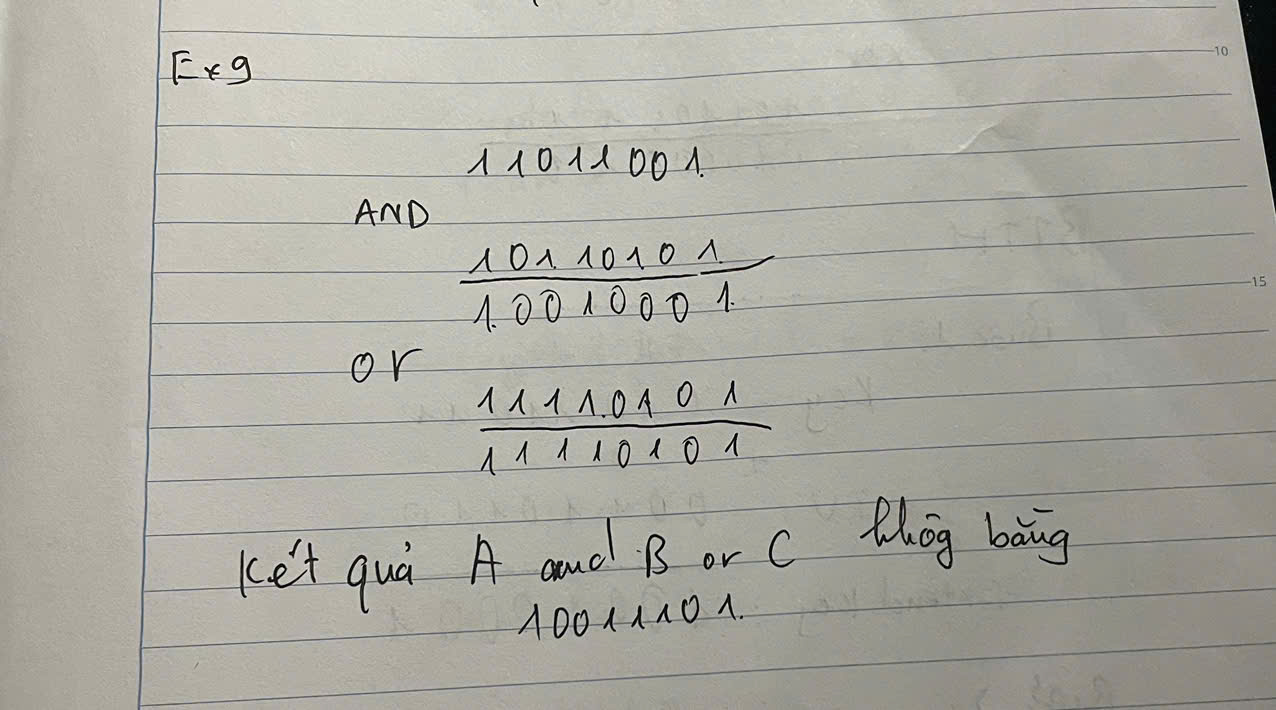 10
Ex 9
11011001.
AND
10110101
10010001.
15
or
11110101
11110101
Kết quả A and B or C khôg bằng
10011101.